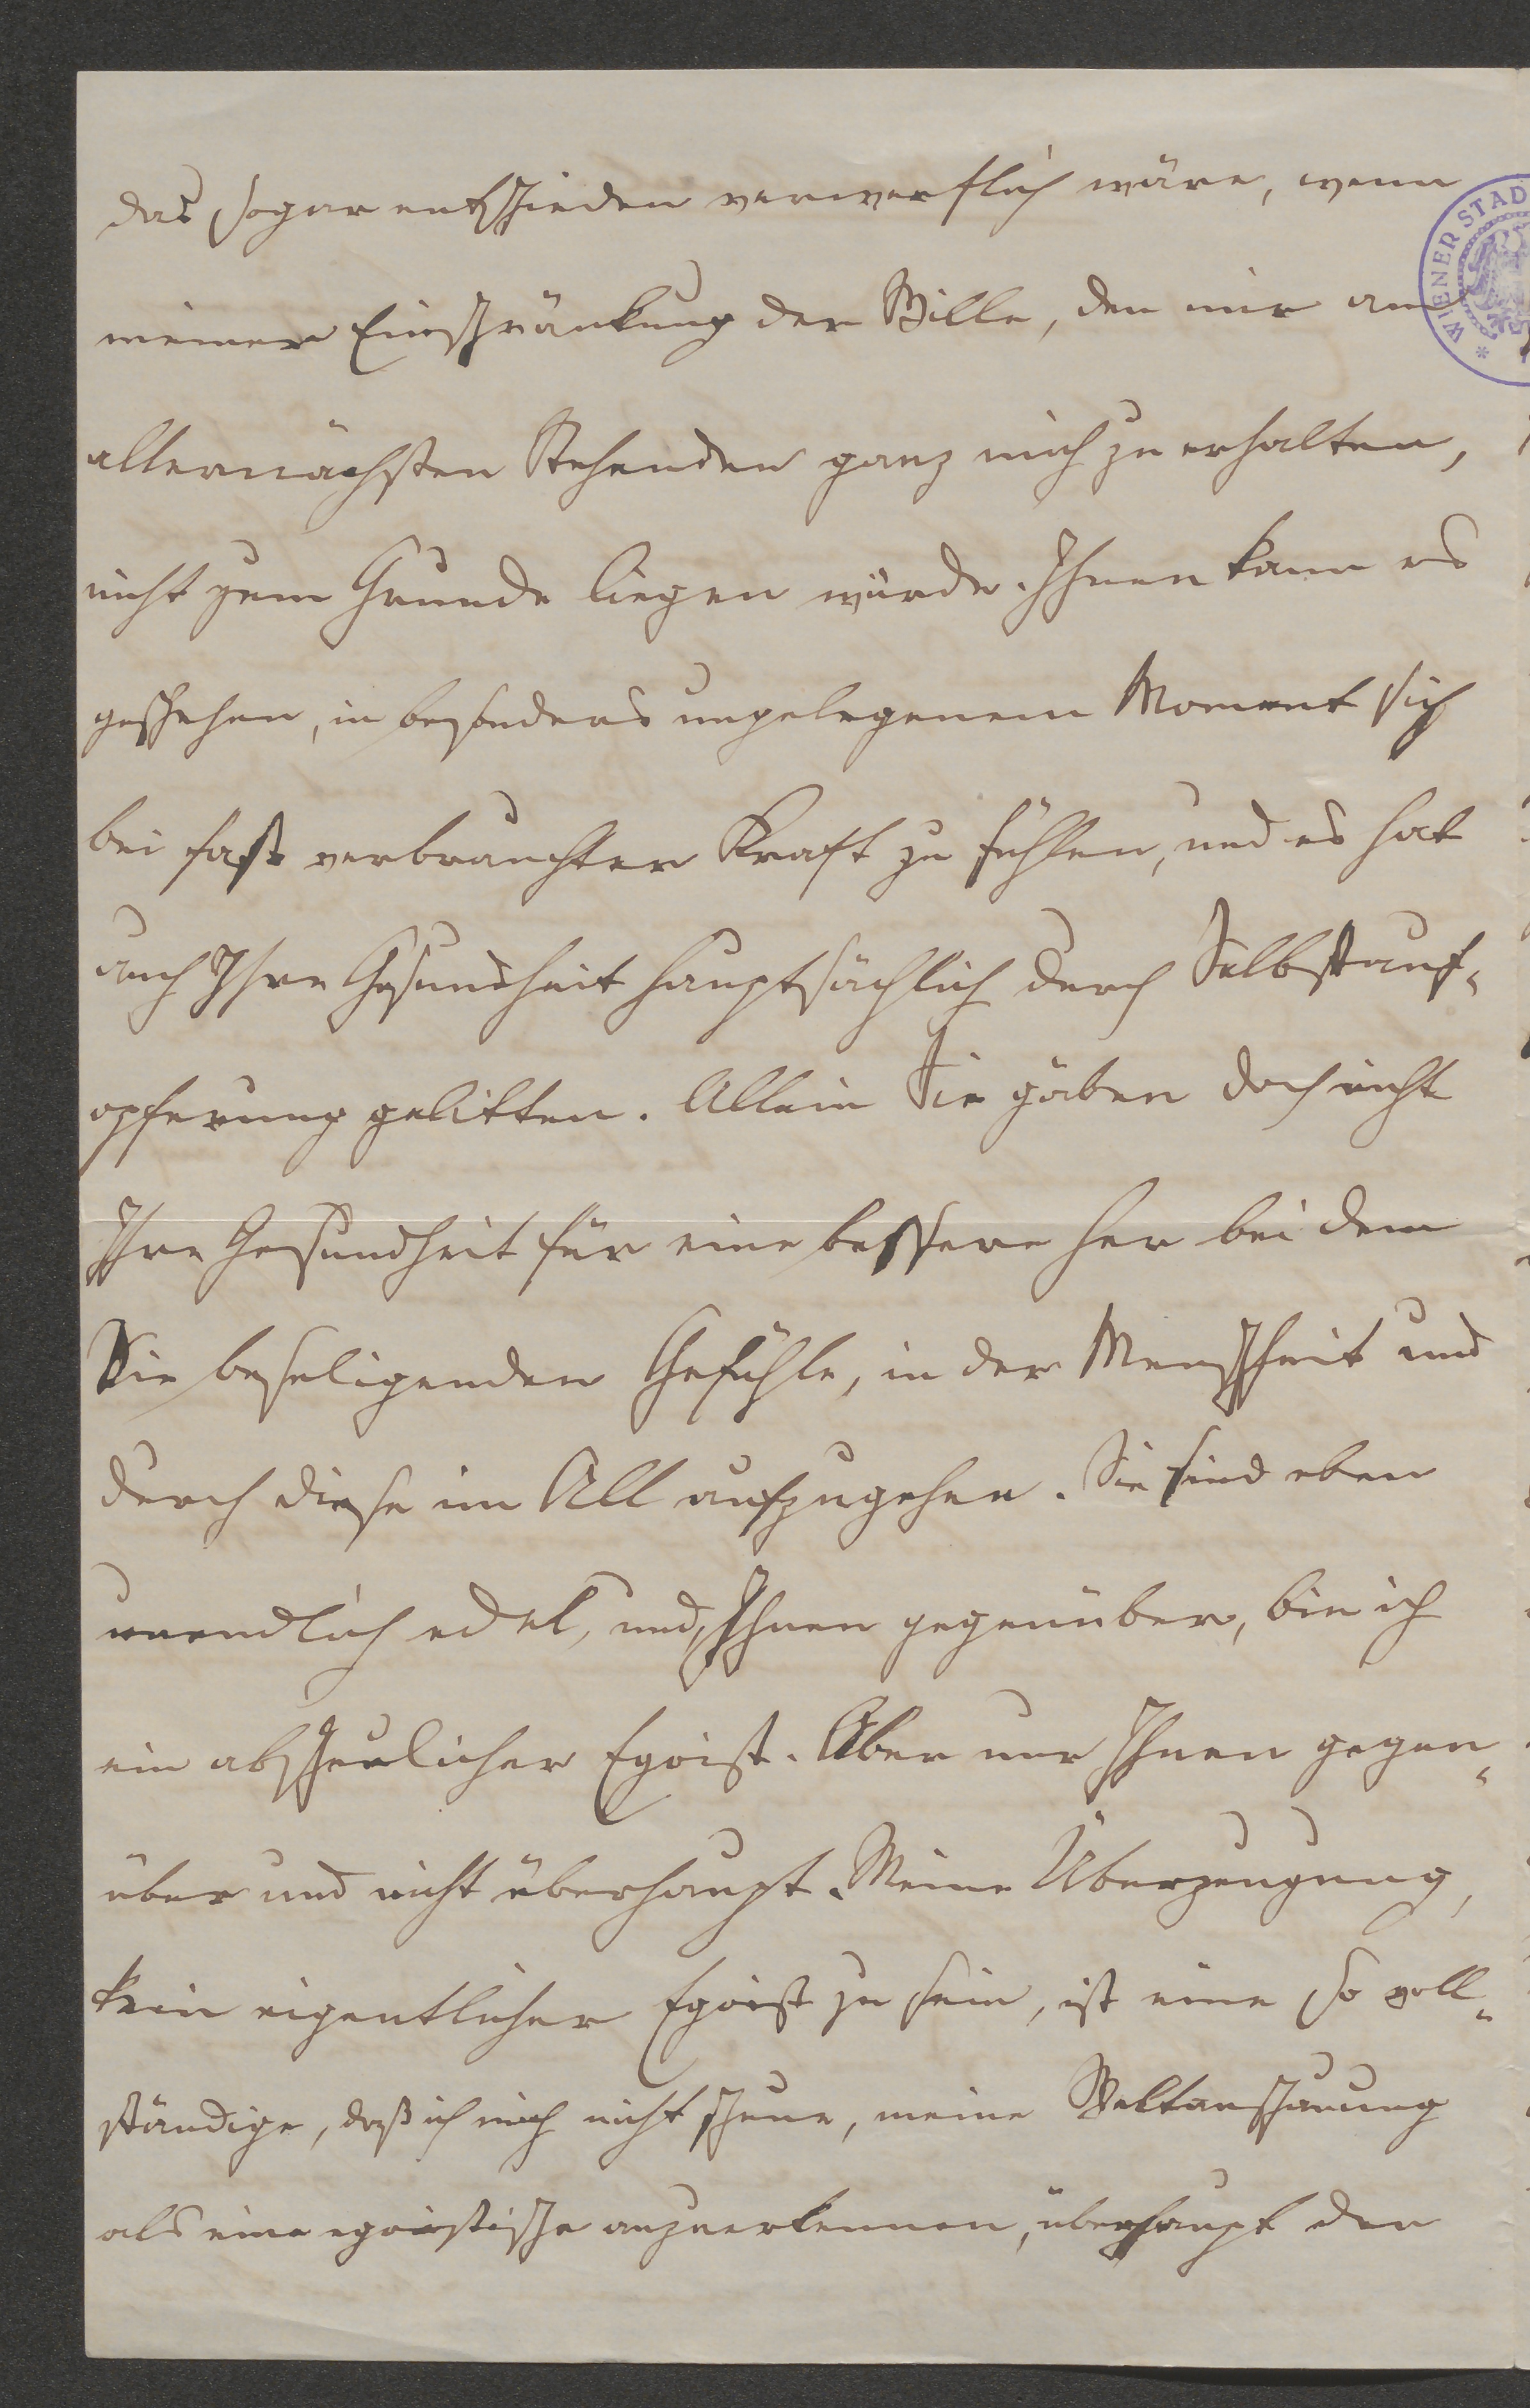 das sogar entschieden verwerflich wäre, wenn
meiner Einschränkung der Wille, den mir am
allernächsten Stehenden ganz mich zu erhalten,
nicht zum Grunde liegen würde. Ihnen kann es
geschehen, in besonders ungelegenem Moment sich
bei fast verbrauchter Kraft zu fühlen, und es hat
auch Ihre Gesundheit hauptsächlich durch Selbstauf-
opferung gelitten. Allein Sie gäben doch nicht
Ihre Gesundheit für eine bessere her bei dem
Sie beseligenden Gefühle, in der Menschheit und
durch diese im All aufzugehen. Sie sind eben
unendlich edel, und, Ihnen gegenüber, bin ich
ein abscheulicher Egoist. Aber nur Ihnen gegen-
über und nicht überhaupt. Meine Überzeugung,
kein eigentlicher Egoist zu sein, ist eine so voll-
ständige, daß ich mich nicht scheue, meine Weltanschauung
als eine egoistische anzuerkennen, überhaupt den
WIENER STAD